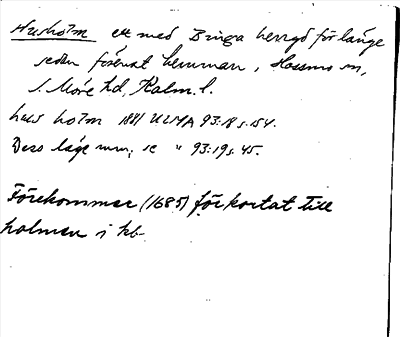 Husholm ett med Binga herrgd för länge
sedan förenat hemman, Hossmo sn,
S. Möre hd, Kalm. l.
hus holm 1881 ULMA 93:18 s. 154.
Dess läge m.m., se " 93:19 s. 45.
Förekommer (1685) förkortat till
holmen i kb.